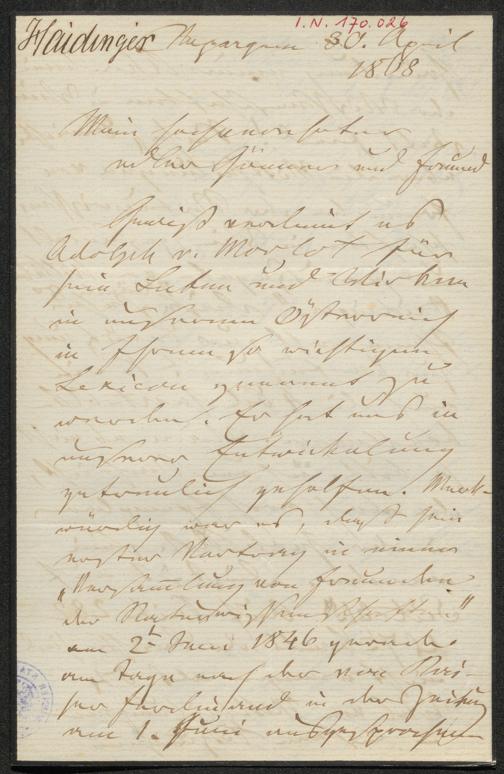 I.N. 170.026
Haidinger
30. April
1868
Mein hochverehrter
edler Gönner und Freund
Gewiß verdient es
Adolph v. Morlot für
sein Leben und Wirken
in unserem Österreich
in Ihrem so wichtigen
Lexicon genannt zu
werden. Er hat uns in
unserer Entwickelung
getreulich geholfen. Merk-
würdig war es, daß sein
erster Vortrag in einer
„Versammlung von Freunden
der Naturwissenschaften"
am 2t Juni 1846 gerade
am Tage nach der von Kai-
ser Ferdinand in der Zeitung
am 1. Juni ausgesprochen